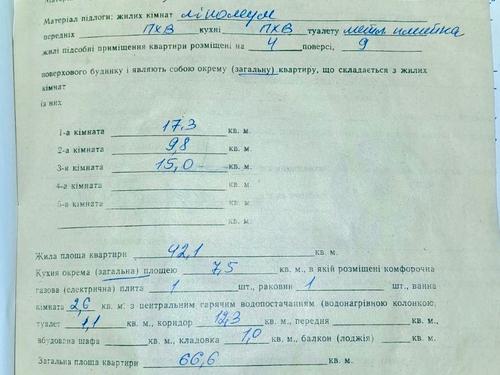 Матеріал підлоги: жилих кімнат лінолеум
передніх ПХВ кухні ПХВ туалету метл. плитка
жилі підсобні приміщення квартири розміщені на 4 поверсі, 9
поверхового будинку і являють собою окрему (загальну) квартиру, що складається з жилих
кімнат
із них
1-а кімната 17,3 кв. м.
2-а кімната 9,8 кв. м.
3-я кімната 15,0 кв. м.
4-а кімната кв. м.
5-а кімната кв. м.
кв. м.
Жила площа квартири 42,1 кв. м.
Кухня окрема (загальна) площею 7,5 кв. м., в якій розміщені комфорочна
газова (електрична) плита 1 шт., раковин 1 шт., ванна
кімната 2,6 кв. м. з центральним гарячим водопостачанням (водонагрівною колонкою,
туалет 1,1 кв. м., коридор 12,3 кв. м., передня кв. м.,
вбудована шафа кв. м., кладовка 1,0 кв. м., балкон (лоджія) кв. м.
Загальна площа квартири 66,6 кв. м.